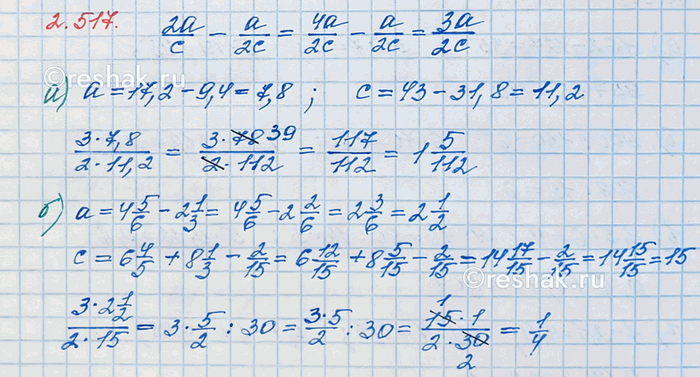 2.517. 2a/c - a/2c = 4a/2c - a/2c = 3a/2c
©reshak.ru
а) a = 17,2 - 9,4 = 7,8 ; c = 43 - 31,8 = 11,2
3·7,8/2·11,2 = 3·78 39/2·112 = 117/112 = 1 5/112
б) a = 4 5/6 - 2 1/3 = 4 5/6 - 2 2/6 = 2 3/6 = 2 1/2
c = 6 4/5 + 8 1/3 - 2/15 = 6 12/15 + 8 5/15 - 2/15 = 14 17/15 - 2/15 = 14 15/15 = 15
3·2 1/2/2·15 = 3·5/2 : 30 = 3·5/2 : 30 = 1 15·1/2·30 2 = 1/4